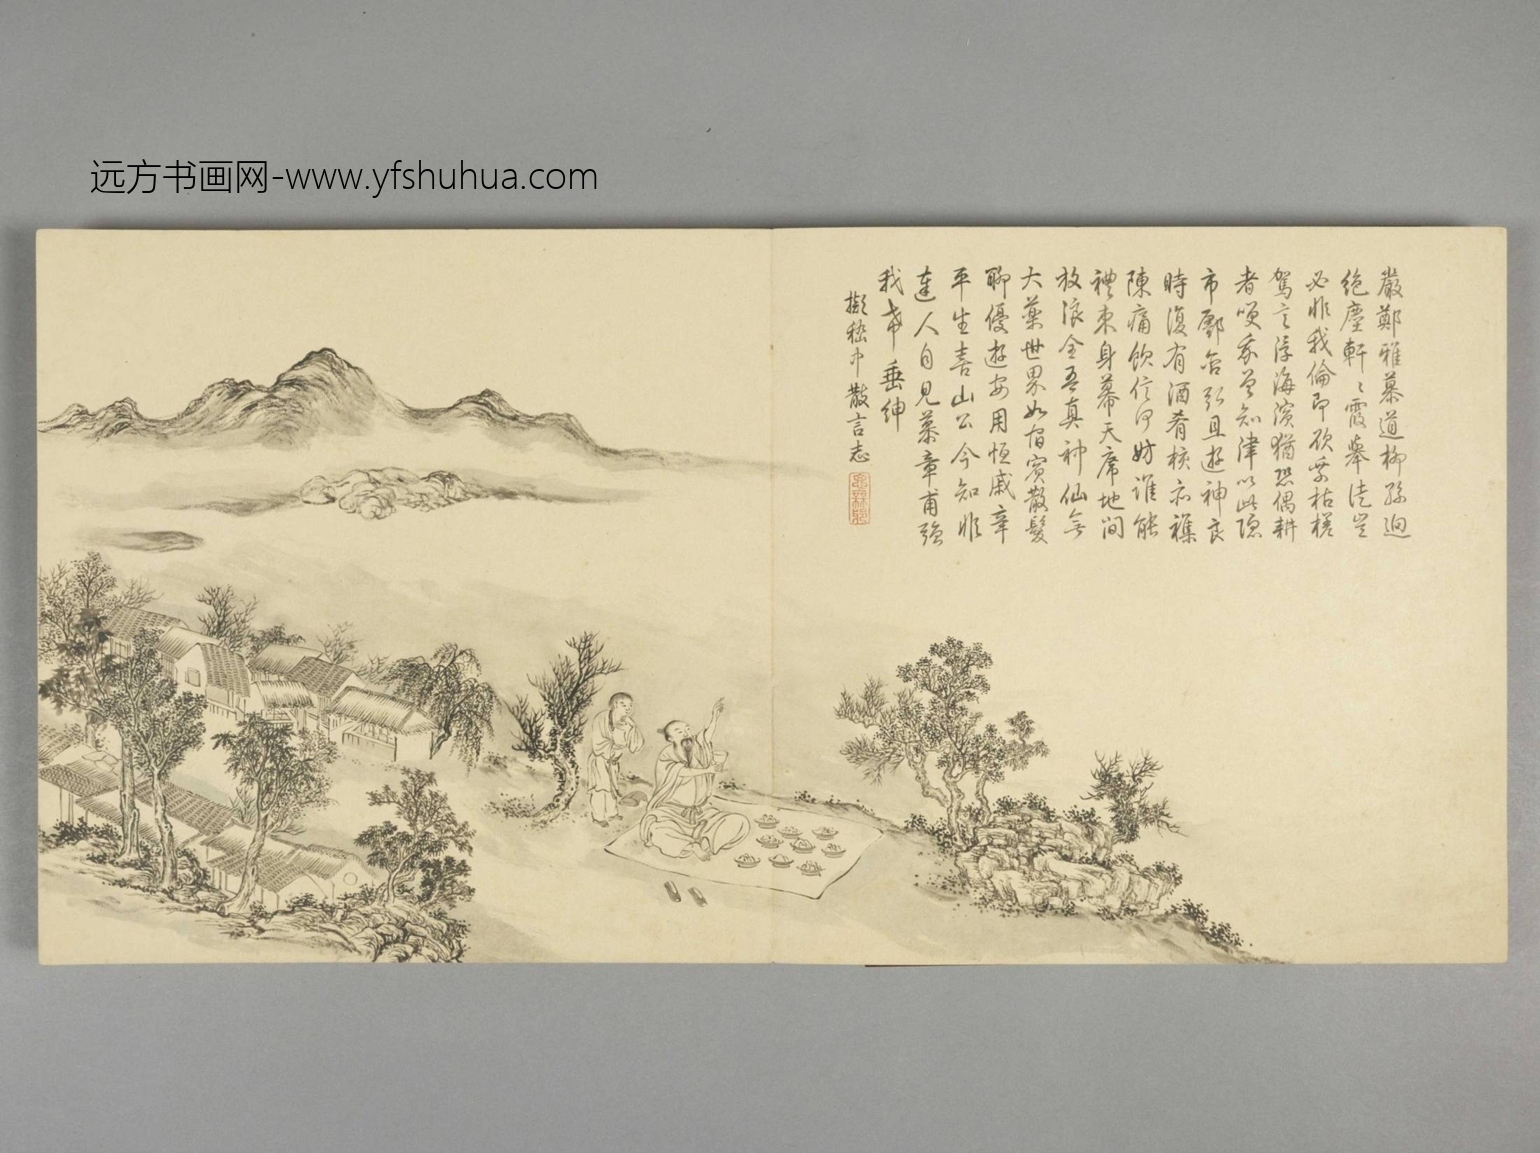 远方书画网-www.yfshuhua.com
嚴鄭雅慕道柳孫迥
絕塵軒〻霞舉徒豈
必非我倫即欲乘枯槎
駕言浮海濱猶恐偶耕
者哭余曾知津以此隱
市酆含弘且遊神良
時復有酒肴核亦襍
陳痛飲信何妨誰能
禮束身幕天席地間
放浪全吾真神仙無
大藥世界如宿賓散髮
聊優遊安用恒戚辛
平生喜山公今知非
達人自見慕章甫強
我希垂紳
擬嵇中散言志